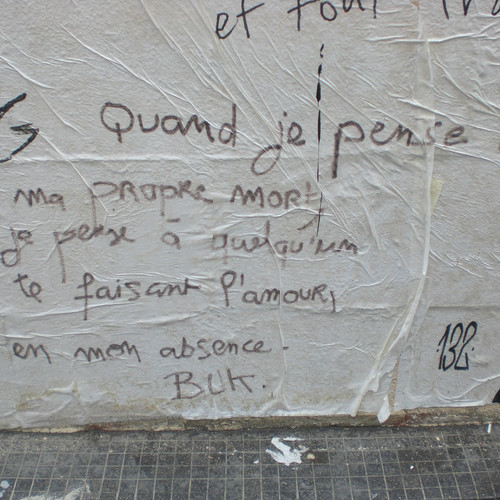 et tout
Quand je pense
ma propre mort
je pense à quelqu'un
te faisant l'amour,
en mon absence.
BUK.
132